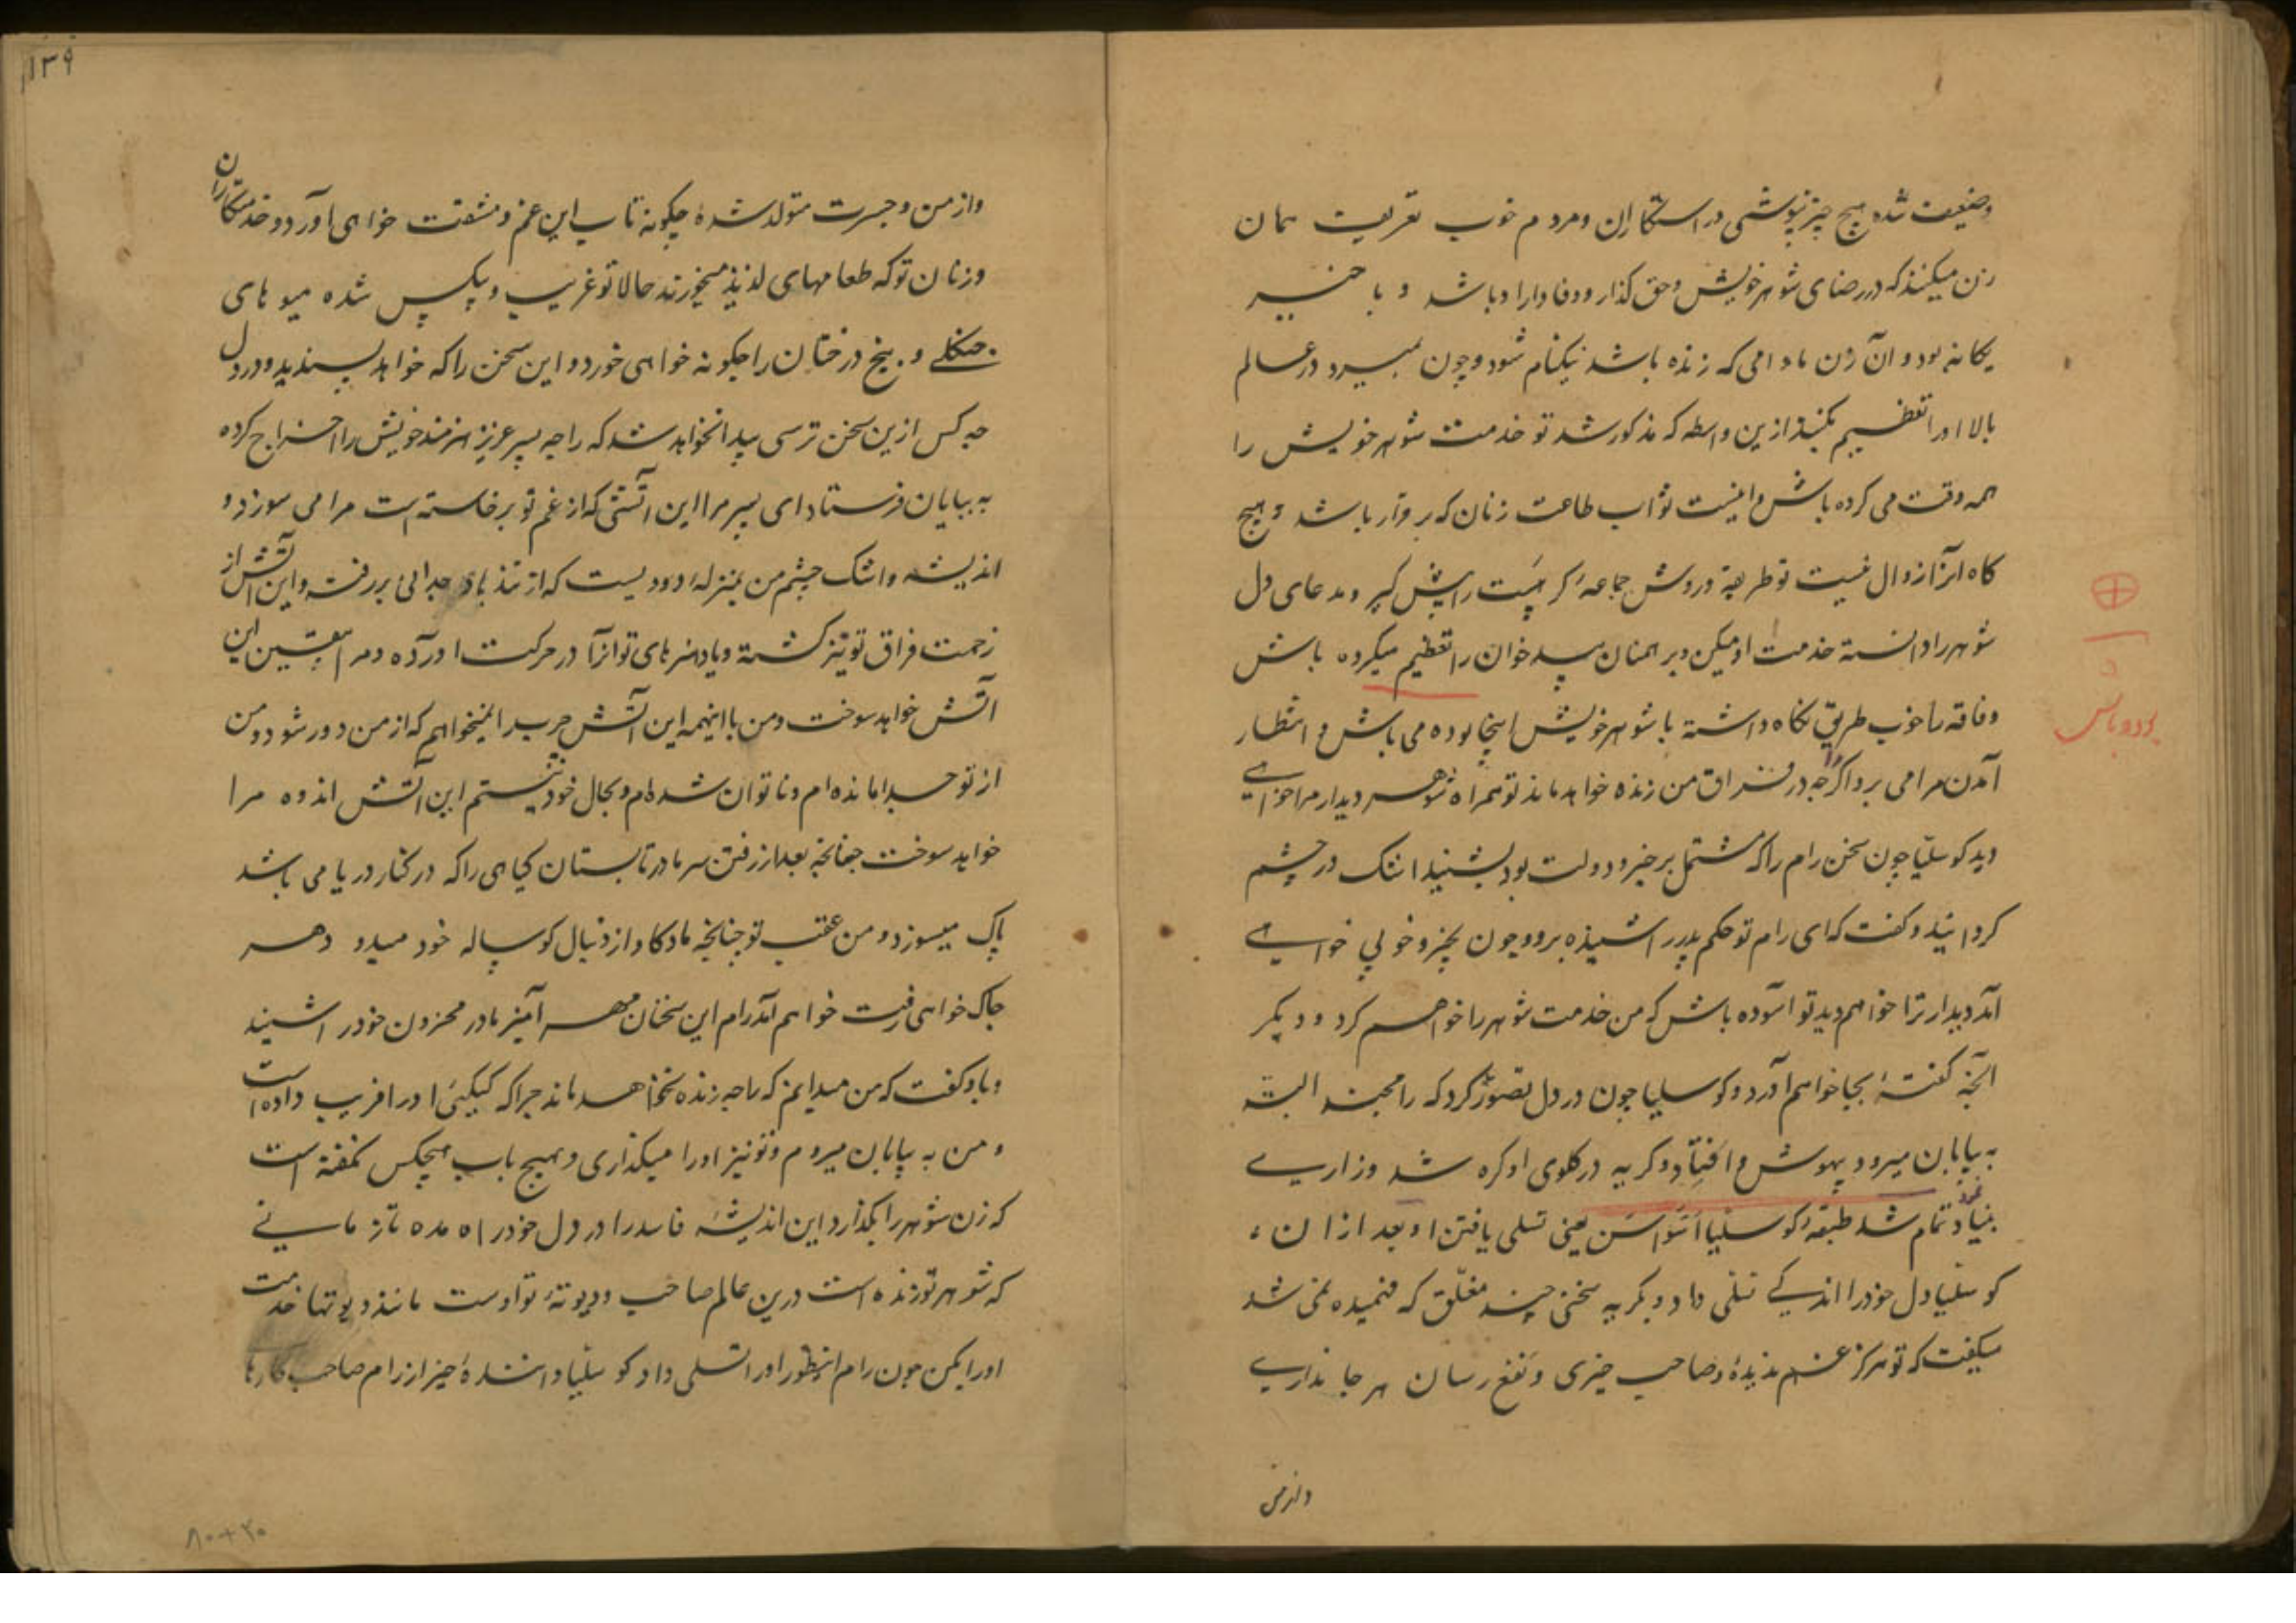 وضعیت شده هیچ چیز نپوشی در استکاران ومردم خوب تعریف همان
زن میکنند که در رضای شوهر خویش وحق گذار ووفادار او باشد و با خیر
یکانه بود وآن زن مادامی که زنده باشد نیکنام شود وچون بمیرد در عالم
بالا اورا تعظیم بکنند ازین واسطه که مذکور شد تو خدمت شوهر خویش را
همه وقت می کرده باش واینست ثواب طاعت زنان که برقرار باشد و هیچ
کاه آنرا زوال نیست تو طریقه وروش جماعهٔ کرهست را پیش گیر ومدعای دل
شوهر را دانسته خدمت او میکن وبرهمنان بید خوان را تعظیم میکرده باش
وفاقه را خوب طریق نگاه داشته با شوهر خویش اینجا بوده می باش وانتظار
آمدن مرا می بر واگر راجه در فراق من زنده خواهد ماند تو همراه شوهر دیدار مرا خواهی
دید کوسلیا چون سخن رام را که مشتمل بر خیر ودولت بود بشنید اشک در چشم
گردانید وگفت که ای رام تو حکم پدر را شنیده برو وچون بخیر وخوبی خواهی
آمد دیدار ترا خواهم دید تو آسوده باش که من خدمت شوهر را خواهم کرد و دیگر
آنچه گفتهٔ بجا خواهم آورد وکوسلیا چون در دل تصور کرد که رامچند البته
به بیابان میرود بیهوش وافتاد وگریه در گلوی او گره شد وزاری
بنیاد نمود تمام شد طبقهٔ کوسلیا اسواسن یعنی تسلی یافتن او بعد ازان
کوسلیا دل خود را اندکی تسلی داد وبگریه سخنی چند مغلق که فهمیده نمی شد
میگفت که تو هرگز غم ندیدهٔ وصاحب خیری ونفع رسان هر جانداری
وازمن
بوده باش
۱۳۹
وازمن وجسرت متولد شدهٔ چگونه تاب این غم ومشقت خواهی آورد وخدمتکاران
وزنان تو که طعامهای لذیذ میخورند حالا تو غریب وبیکس شده میوهای
جنگلی و بیخ درختان را چگونه خواهی خورد واین سخن را که خواهد پسندید ودر دل
چه کس ازین سخن ترسی پیدا نخواهد شد که راجه پسر عزیز هنرمند خویش را اخراج کرده
به بیابان فرستاد ای پسر مرا این آتشی که از غم تو برخاسته است مرا می سوزد و
اندیشه واشک چشم من بمنزلهٔ دودیست که از تند باد جدائی بر رفته واین آتش از
زحمت فراق تو تیز گشته ویاد هنرهای تو آنرا در حرکت آورده ومرا بیقین این
آتش خواهد سوخت ومن با اینهمه این آتش چرب را نمیخواهم که از من دور شود ومن
از تو جدا مانده ام وناتوان شده ام وبحال خود نیستم این آتش اندوه مرا
خواهد سوخت چنانچه بعد از رفتن سرما در تابستان گیاهی را که در کنار دریا می باشد
پاک میسوزد ومن عقب تو چنانچه ماده گاو از دنبال گوساله خود میدود هر
جا که خواهی رفت خواهم آمد رام این سخنان مهر آمیز مادر محزون خود را شنید
وباو گفت که من میدانم که راجه زنده نخواهد ماند چرا که کیکیی اورا فریب داده است
ومن به بیابان میروم وتو نیز اورا میگذاری وهیچ باب هیچکس نگفته است
که زن شوهر را بگذارد این اندیشه فاسد را در دل خود راه مده تا زمانی
که شوهر تو زنده است درین عالم صاحب ودیوتهٔ تو اوست مانند دیوتها خدمت
اورا بکن چون رام اینطور اورا تسلی داد کوسلیا دانندهٔ خیر از رام صاحب کارها
۸۰+۲۰